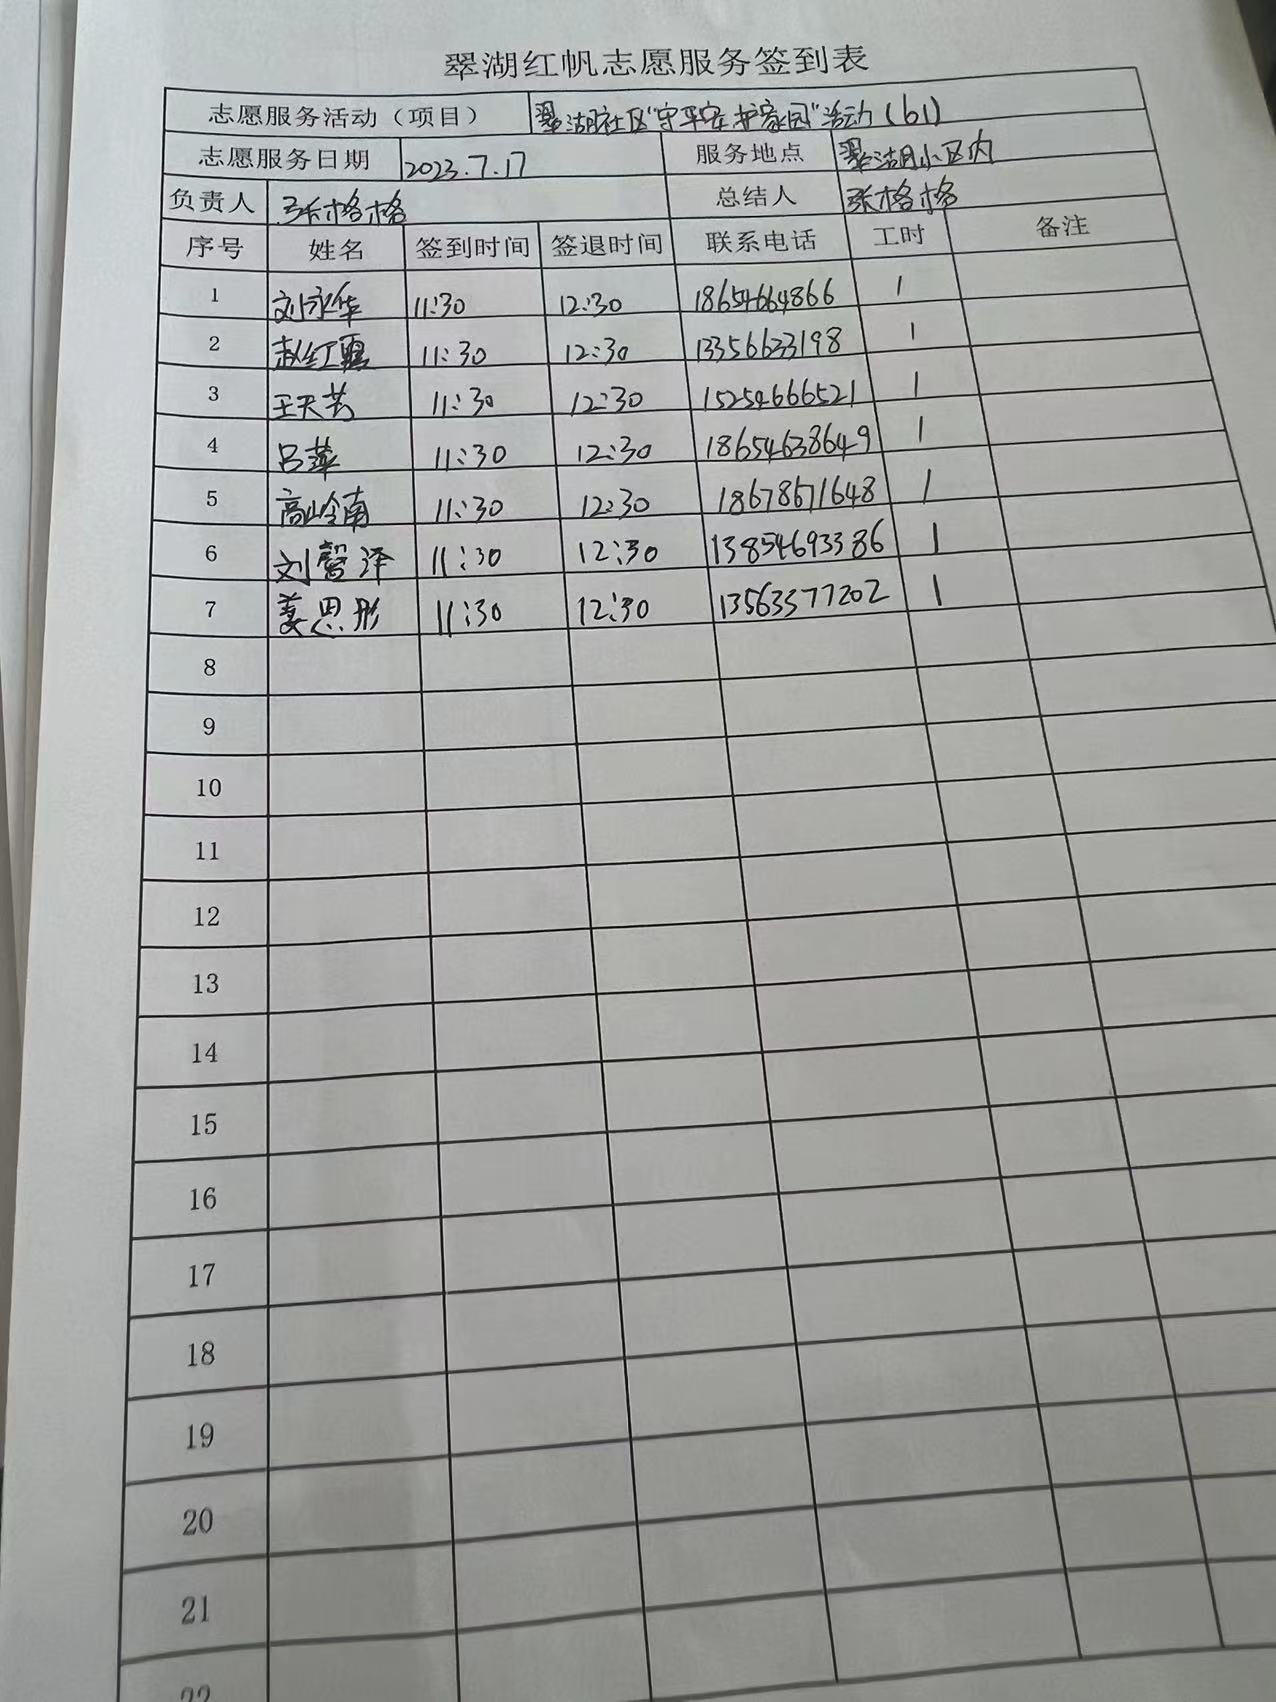 翠湖红帆志愿服务签到表
志愿服务活动（项目） 翠湖社区“守平安 护家园”活动（61）
志愿服务日期 2023.7.17 服务地点 翠湖小区内
负责人 张格格 总结人 张格格
序号 姓名 签到时间 签退时间 联系电话 工时 备注
1 刘永华 11:30 12:30 18654664866 1
2 赵红霞 11:30 12:30 13356633198 1
3 王天芸 11:30 12:30 15254666521 1
4 吕萍 11:30 12:30 18654638649 1
5 高岭南 11:30 12:30 18678671648 1
6 刘馨泽 11:30 12:30 13854693386 1
7 姜思彤 11:30 12:30 13563377202 1
8
9
10
11
12
13
14
15
16
17
18
19
20
21
22